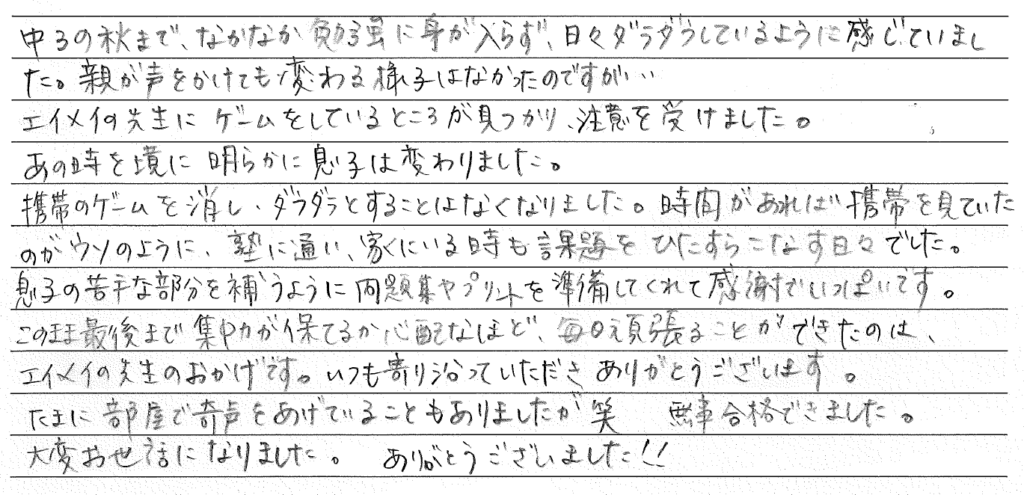 中3の秋まで、なかなか勉強に身が入らず、日々ダラダラしているように感じていまし
た。親が声をかけても変わる様子はなかったのですが‥
エイメイの先生に ゲームをしているところが見つかり、注意を受けました。
あの時を境に 明らかに息子は変わりました。
携帯のゲームを消し、ダラダラとすることはなくなりました。時間があれば携帯を見ていた
のがウソのように、塾に通い、家にいる時も課題をひたすらこなす日々でした。
息子の苦手な部分を補うように問題集やプリントを準備してくれて感謝でいっぱいです。
このまま最後まで集中力が保てるか心配なほど、毎日頑張ることができたのは、
エイメイの先生のおかげです。いつも寄り沿っていただきありがとうございます。
たまに部屋で奇声をあげていることもありましたが笑 無事合格できました。
大変お世話になりました。 ありがとうございました!!